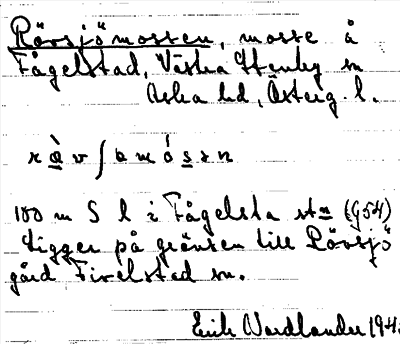 Rövsjömossen, mosse å
Fågelstad, Västra Stenby sn
Aska hd, Österg. l.
r æ̀ v ʃ ɵ m ó s ɘ n
100 m S l i Fågelsta stn (G54)
Ligger på gränsen till Rövsjö
gård Fivelstad sn.
Erik Nordlander 194